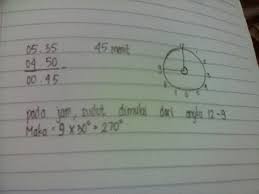 05.35 45 menit
04.50
00.45
12
9
pada jam, sudut dimulai dari angka 12-9
Maka = 9 x 30° = 270°